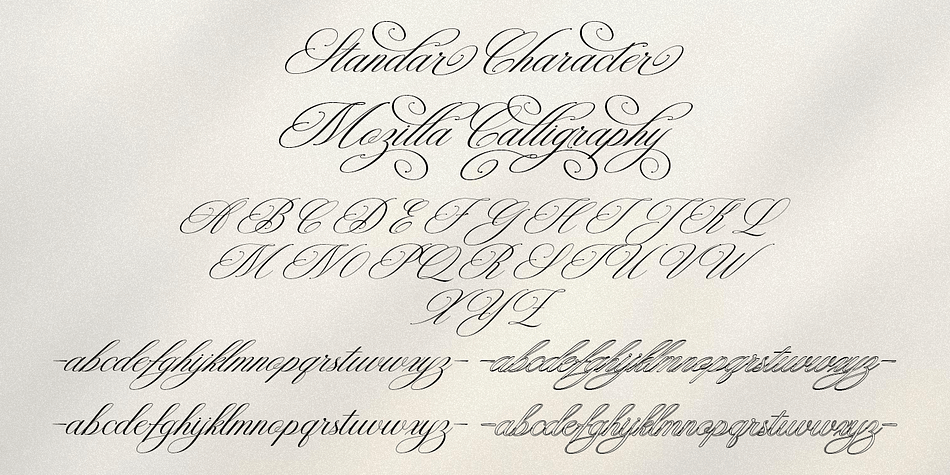 Standar Character
Mozilla Calligraphy
A B C D E F G H I J K L
M N O P Q R S T U V W
X Y Z
abcdefghijklmnopqrstuvwxyz abcdefghijklmnopqrstuvwxyz
abcdefghijklmnopqrstuvwxyz abcdefghijklmnopqrstuvwxyz